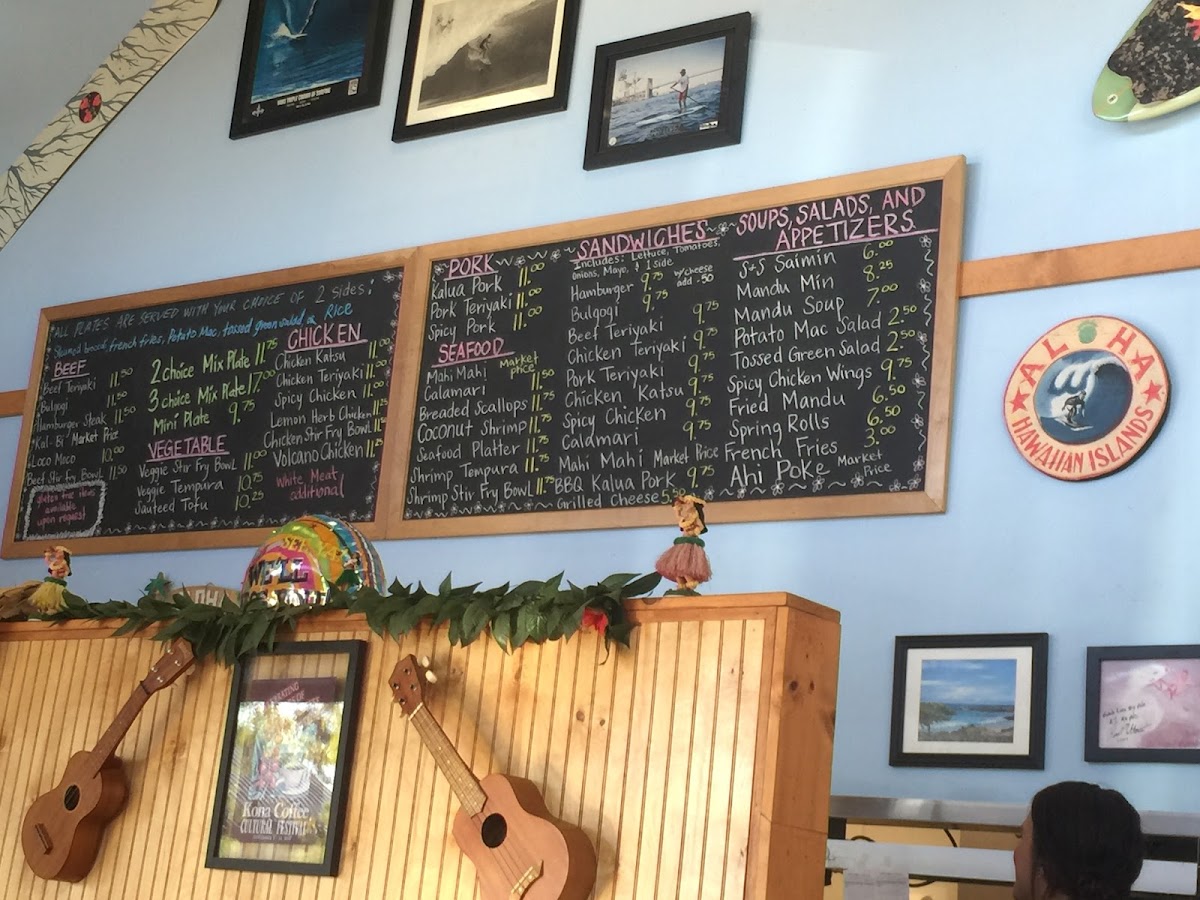 VANS TRIPLE CROWN OF SURFING
ALL PLATES ARE SERVED WITH YOUR CHOICE OF 2 sides:
Steamed broccoli, french fries, Potato Mac, tossed green salad, or RICE
BEEF
Beef Teriyaki 11.50
Bulgogi 11.50
Hamburger Steak 11.50
"Kal-Bi" Market Price
Loco Moco 10.00
Beef Stir Fry Bowl 11.50
gluten free items
available
upon request
2 choice Mix Plate 11.75
3 choice Mix Plate 17.00
Mini Plate 9.75
VEGETABLE
Veggie Stir Fry Bowl 11.00
Veggie Tempura 10.75
Sauteed Tofu 10.25
CHICKEN
Chicken Katsu 11.00
Chicken Teriyaki 11.00
Spicy Chicken 11.00
Lemon Herb Chicken 11.25
Chicken Stir Fry Bowl 11.50
Volcano Chicken 11.25
White Meat
additional
PORK
Kalua Pork 11.00
Pork Teriyaki 11.00
Spicy Pork 11.00
SEAFOOD
Mahi Mahi Market Price
Calamari 11.50
Breaded Scallops 11.75
Coconut Shrimp 11.75
Seafood Platter 11.75
Shrimp Tempura 11.75
Shrimp Stir Fry Bowl 11.75
SANDWICHES
Includes: Lettuce, Tomatoes,
Onions, Mayo, & 1 side
Hamburger 9.75 w/cheese add .50
Bulgogi 9.75
Beef Teriyaki 9.75
Chicken Teriyaki 9.75
Pork Teriyaki 9.75
Chicken Katsu 9.75
Spicy Chicken 9.75
Calamari 9.75
Mahi Mahi Market Price
BBQ Kalua Pork 9.75
Grilled Cheese 5.50
SOUPS, SALADS, AND
APPETIZERS
S+S Saimin 6.00
Mandu Min 8.25
Mandu Soup 7.00
Potato Mac Salad 2.50
Tossed Green Salad 2.50
Spicy Chicken Wings 9.75
Fried Mandu 6.50
Spring Rolls 6.50
French Fries 3.00
Ahi Poke Market Price
ALOHA
HAWAIIAN ISLANDS
WE'LL
Kona Coffee
CULTURAL FESTIVAL